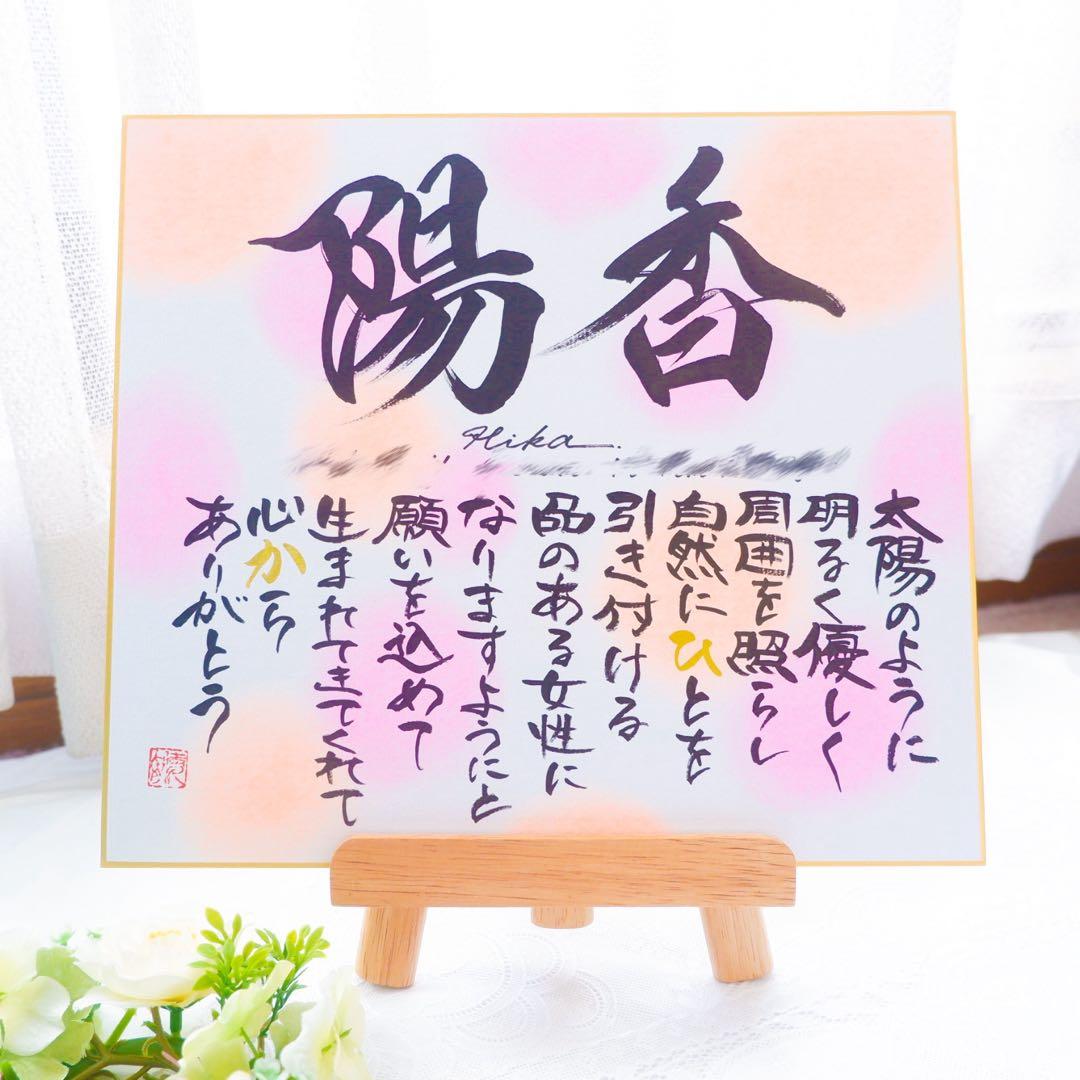 陽香
Hika
太陽のように
明るく優しく
周囲を照らし
自然にひとを
引き付ける
品のある女性に
なりますようにと
願いを込めて
生まれてきてくれて
心から
ありがとう